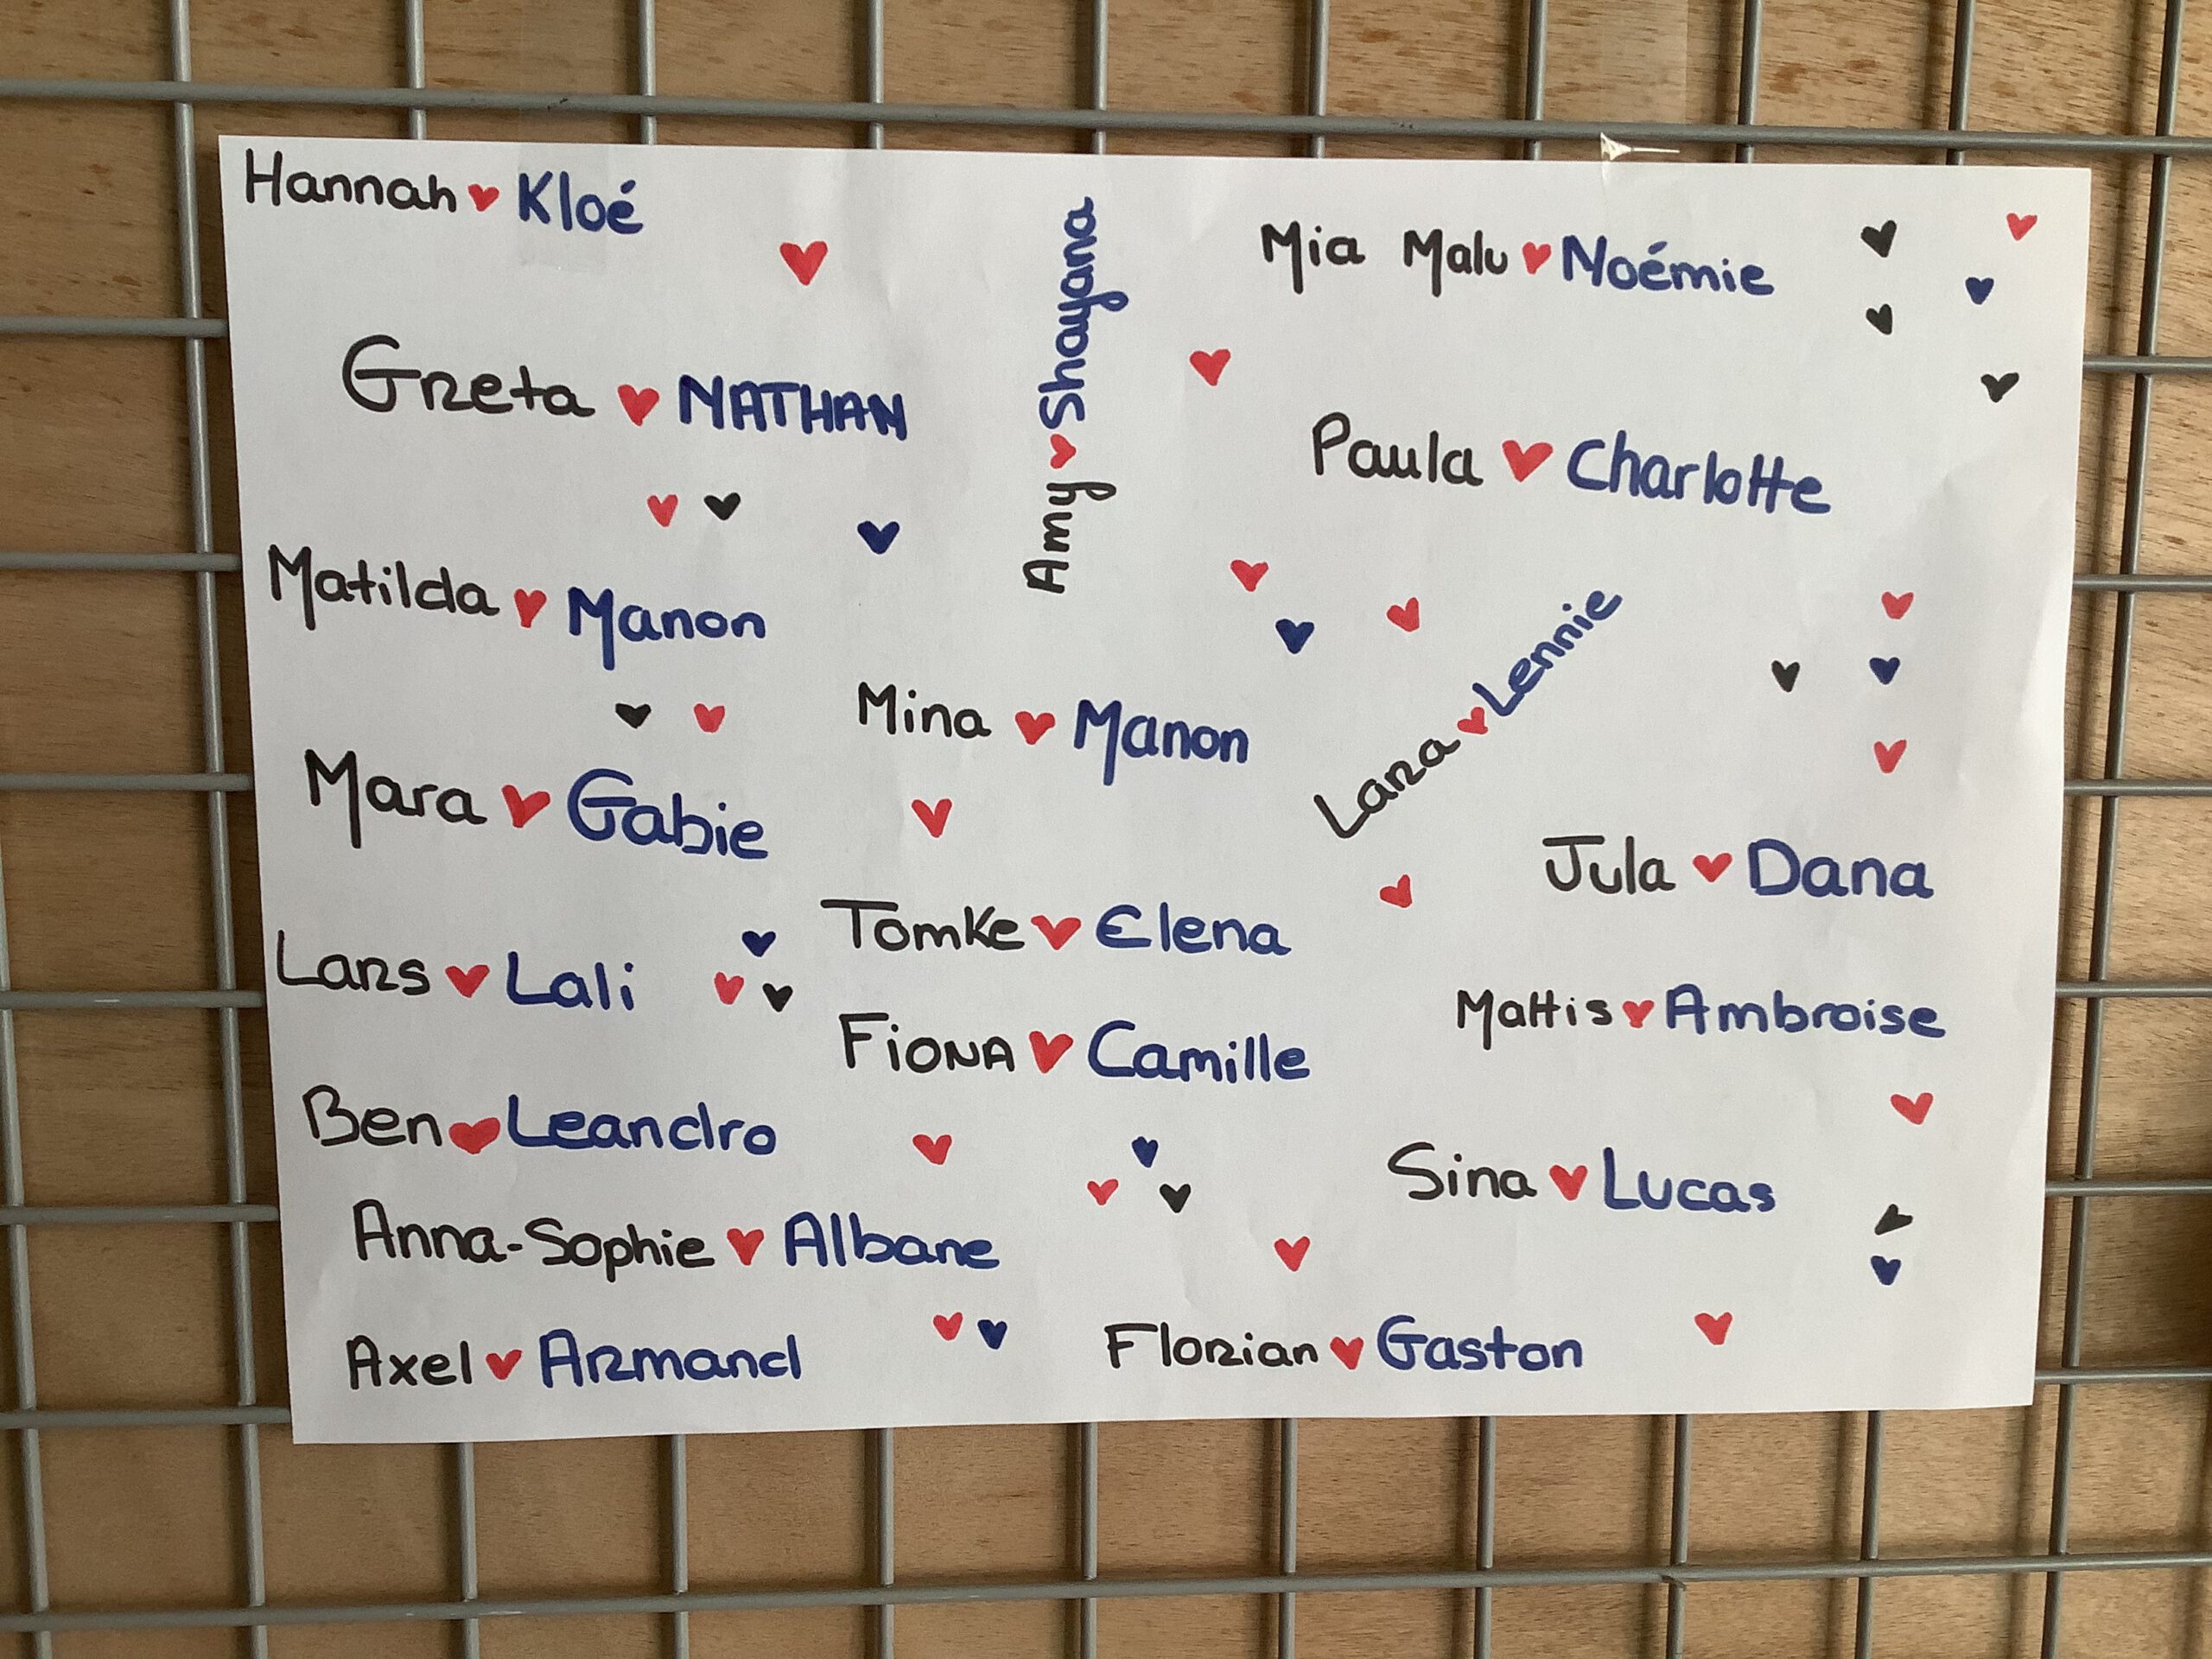 Hannah ♥ Kloé
Greta ♥ NATHAN
Matilda ♥ Manon
Mara ♥ Gabie
Lars ♥ Lali
Ben ♥ Leandro
Anna-Sophie ♥ Albane
Axel ♥ Armand
Amy ♥ Shayana
Mina ♥ Manon
Tomke ♥ Elena
Fiona ♥ Camille
Florian ♥ Gaston
Mia Malu ♥ Noémie
Paula ♥ Charlotte
Lara ♥ Lennie
Jula ♥ Dana
Mattis ♥ Ambroise
Sina ♥ Lucas